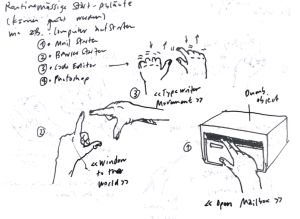 Routinemässige Start-Abläufe
wie zB. Computer aufstarten
① • Mail Starten
② • Browser Starten
③ • Code Editor
④ • Photoshop
③ <<Typewriter
Movement>>
②
<<Window
to the
World>>
Dumb
object
①
<< Open Mailbox >>